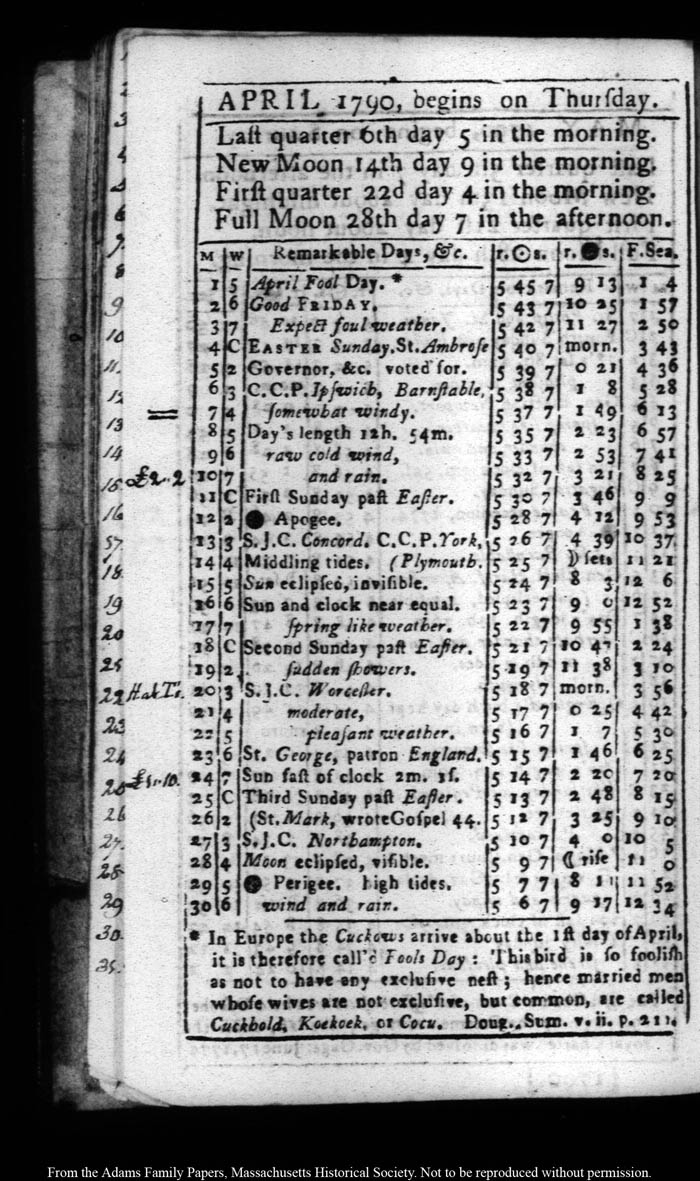 APRIL 1790, begins on Thurſday.
Laſt quarter 6th day 5 in the morning.
New Moon 14th day 9 in the morning.
Firſt quarter 22d day 4 in the morning.
Full Moon 28th day 7 in the afternoon.
M W Remarkable Days, &c. r.☉s. r.●s. F.Sea.
1 5 April Fool Day. * 5 45 7 9 13 1 4
2 6 Good FRIDAY. 5 43 7 10 25 1 57
3 7 Expect foul weather. 5 42 7 11 27 2 50
4 C EASTER Sunday. St. Ambroſe 5 40 7 morn. 3 43
5 2 Governor, &c. voted for. 5 39 7 0 21 4 36
6 3 C.C.P. Ipſwich, Barnſtable, 5 38 7 1 8 5 28
7 4 ſomewhat windy. 5 37 7 1 49 6 13
8 5 Day's length 12h. 54m. 5 35 7 2 23 6 57
9 6 raw cold wind, 5 33 7 2 53 7 41
£2..2 10 7 and rain. 5 32 7 3 21 8 25
11 C Firſt Sunday paſt Eaſter. 5 30 7 3 46 9 9
12 2 ● Apogee. 5 28 7 4 12 9 53
13 3 S.J.C. Concord. C.C.P. York, 5 26 7 4 39 10 37
14 4 Middling tides. (Plymouth. 5 25 7 ☽ ſets 11 21
15 5 Sun eclipſed, inviſible. 5 24 7 8 3 12 6
16 6 Sun and clock near equal. 5 23 7 9 0 12 52
17 7 ſpring like weather. 5 22 7 9 55 1 38
18 C Second Sunday paſt Eaſter. 5 21 7 10 47 2 24
19 2 ſudden ſhowers. 5 19 7 11 38 3 10
20 3 S.J.C. Worceſter. 5 18 7 morn. 3 56
21 4 moderate, 5 17 7 0 25 4 42
22 5 pleaſant weather. 5 16 7 1 7 5 30
23 6 St. George, patron England. 5 15 7 1 46 6 25
24 7 Sun faſt of clock 2m. 1ſ. 5 14 7 2 20 7 20
25 C Third Sunday paſt Eaſter. 5 13 7 2 48 8 15
26 2 (St. Mark, wrote Goſpel 44. 5 12 7 3 25 9 10
27 3 S.J.C. Northampton. 5 10 7 4 0 10 5
28 4 Moon eclipſed, viſible. 5 9 7 ☾ riſe 11 0
29 5 ● Perigee. high tides. 5 7 7 8 11 11 52
30 6 wind and rain. 5 6 7 9 17 12 34
* In Europe the Cuckows arrive about the 1ſt day of April,
it is therefore call'd Fools Day: This bird is ſo fooliſh
as not to have any excluſive neſt; hence married men
whoſe wives are not excluſive, but common, are called
Cuckhold, Koekoek, or Cocu. Doug. Sum. v. ii. p. 211.
3
4
5
6
7
8
9
10
11
12
13
14
15
16
17
18
19
20
22
23
24
26
27
28
29
30
From the Adams Family Papers, Massachusetts Historical Society. Not to be reproduced without permission.